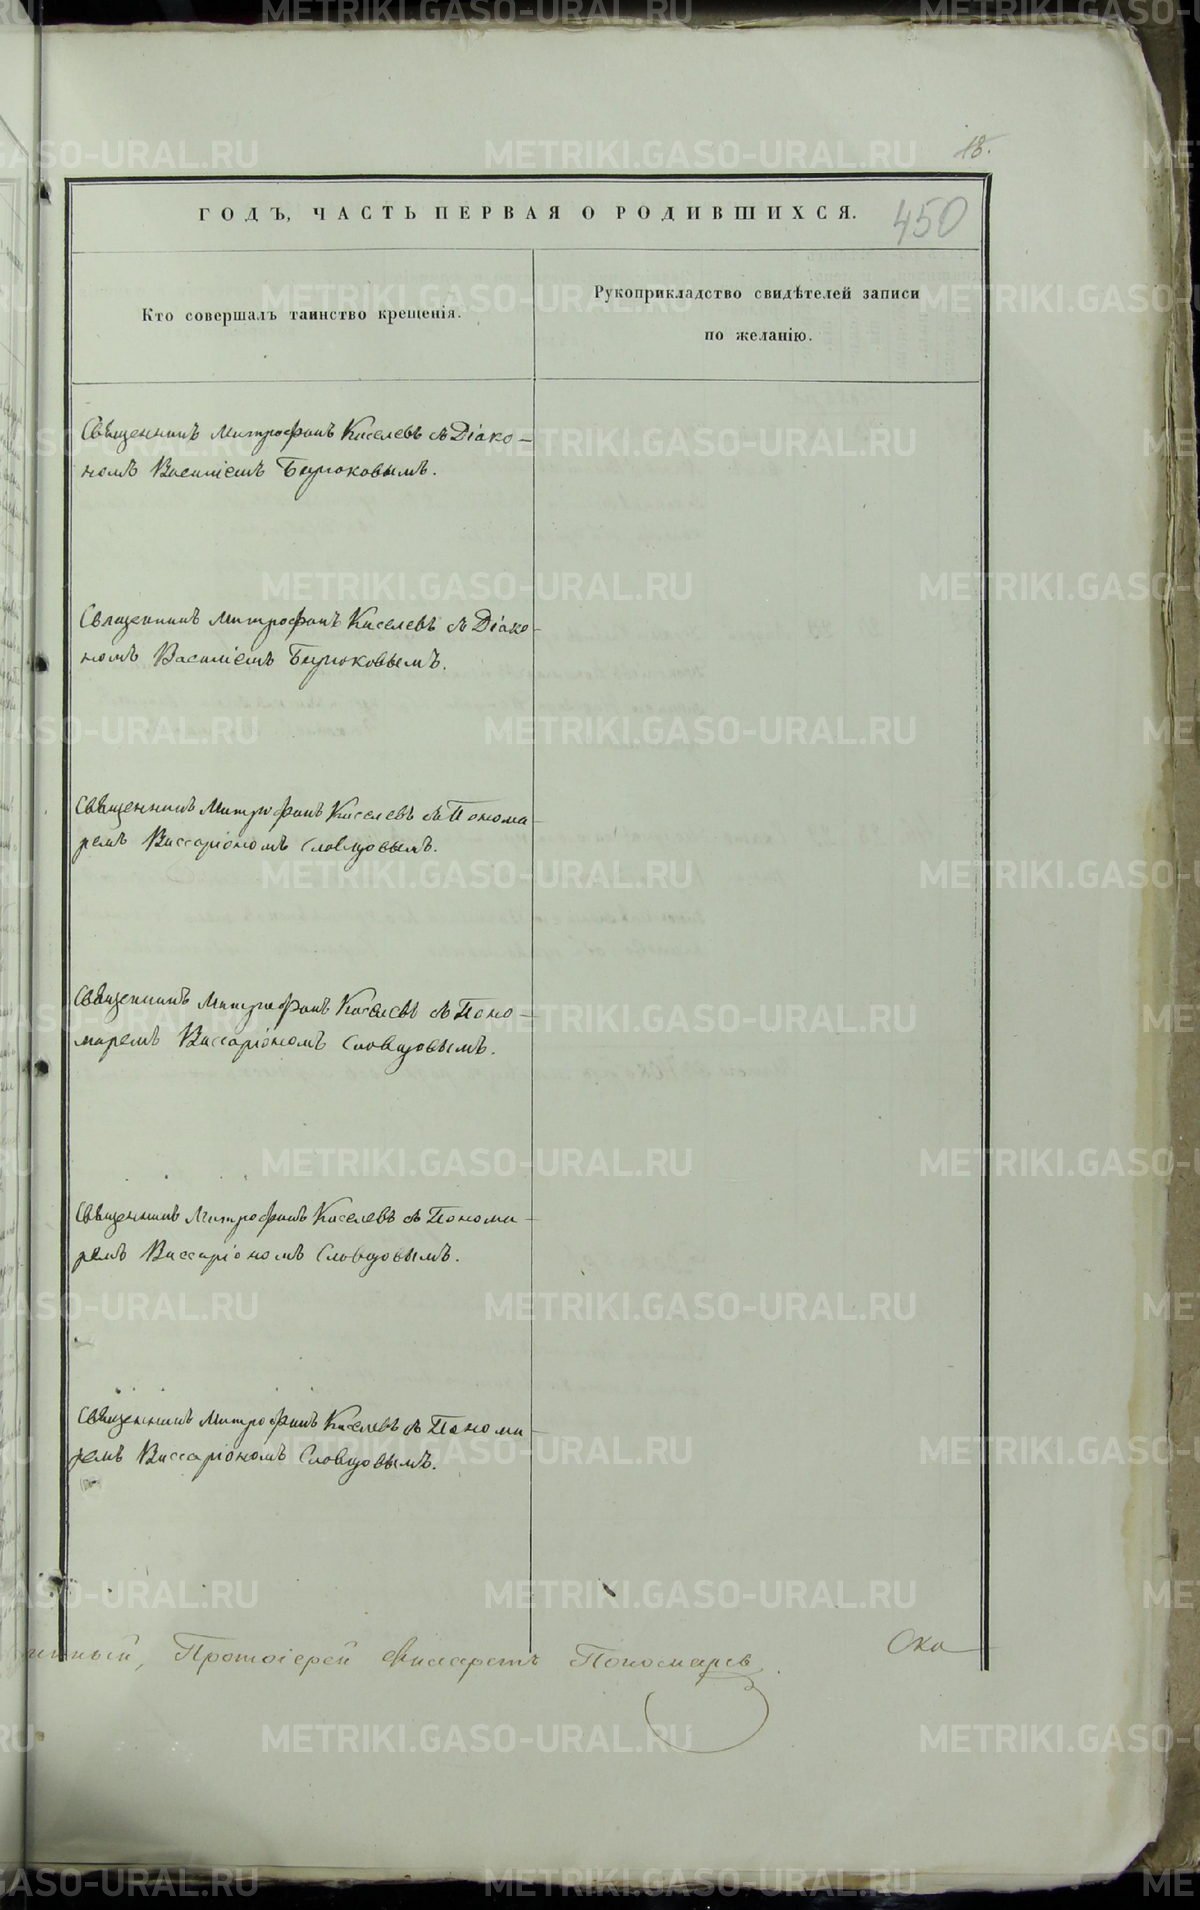 18.
ГОДЪ, ЧАСТЬ ПЕРВАЯ О РОДИВШИХСЯ.
450
Кто совершалъ таинство крещенія.
Рукоприкладство свидѣтелей записи
по желанію.
Священникъ Митрофанъ Киселевъ съ Діако-
номъ Василіемъ Бирюковымъ.
Священникъ Митрофанъ Киселевъ съ Діако-
номъ Василіемъ Бирюковымъ.
Священникъ Митрофанъ Киселевъ съ Понома-
ремъ Виссаріономъ Словцовымъ.
Священникъ Митрофанъ Киселевъ съ Поно-
маремъ Виссаріономъ Словцовымъ.
Священникъ Митрофанъ Киселевъ съ Понома-
ремъ Виссаріономъ Словцовымъ.
Священникъ Митрофанъ Киселевъ съ Понома-
ремъ Виссаріономъ Словцовымъ.
Протоіерей Филаретъ Пономарев
Ока
METRIKI.GASO-URAL.RU